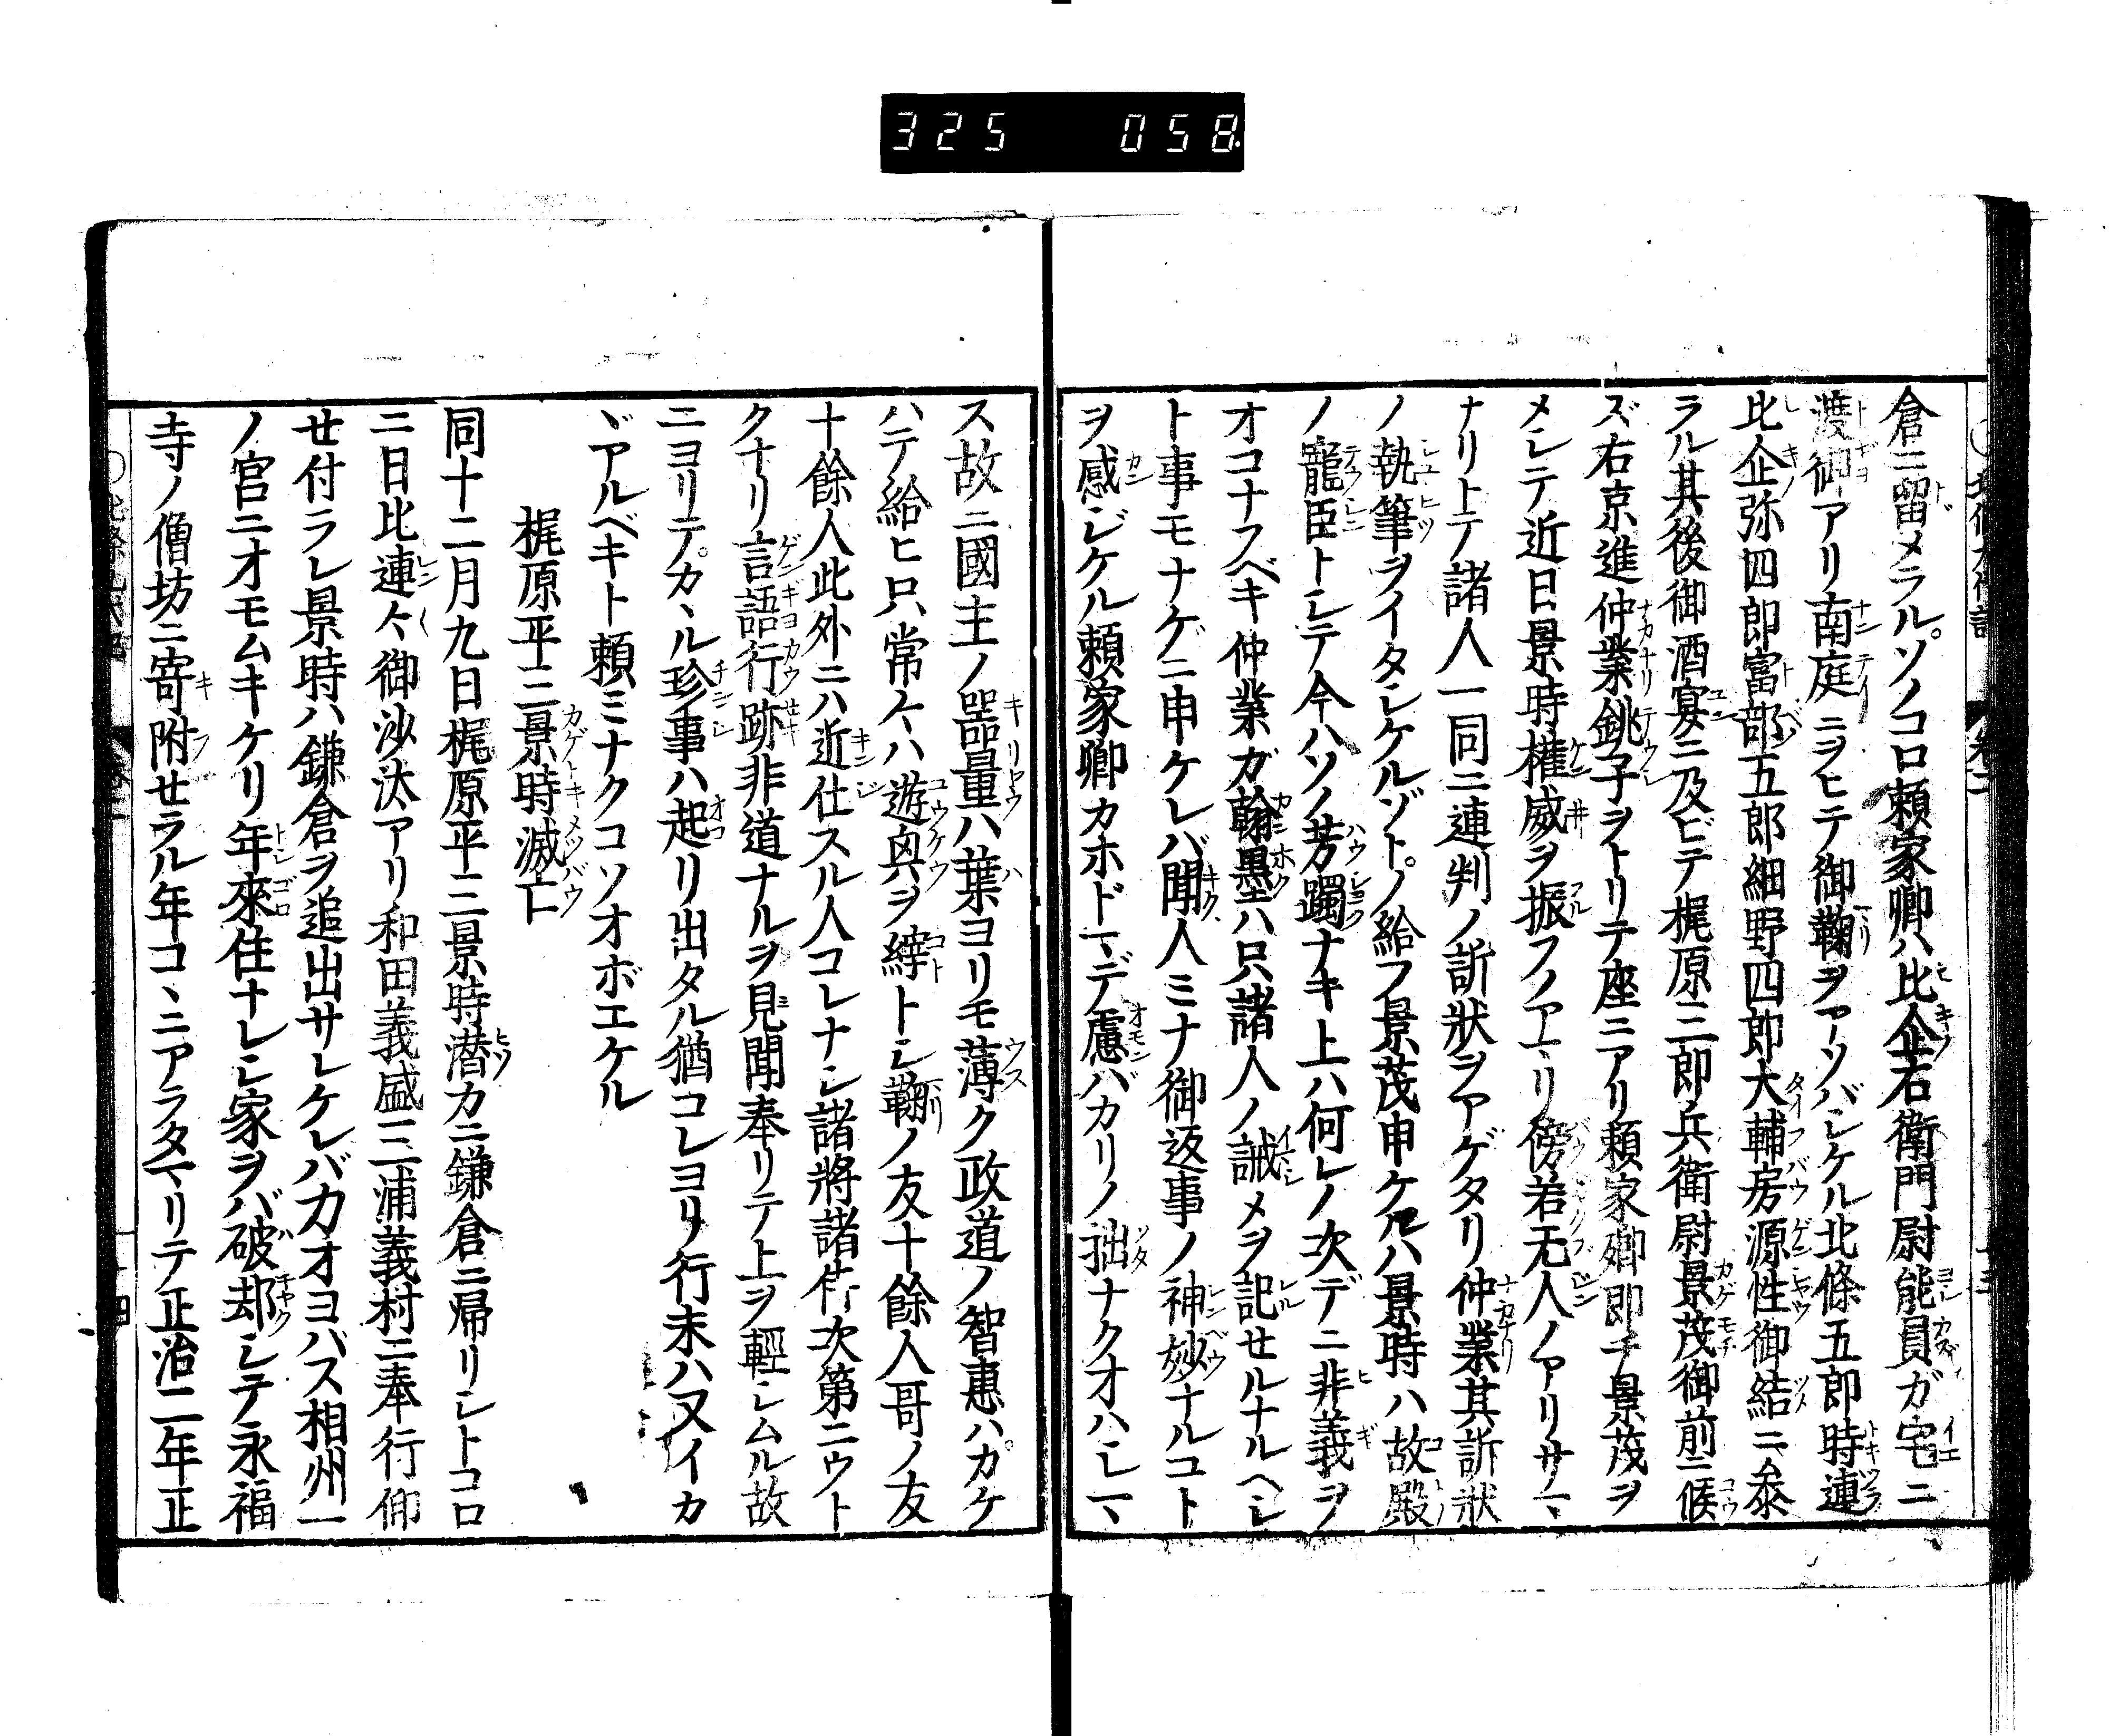 325 058
倉ニ留メラル。ソノコロ頼家卿ハ比企右衛門尉能員ガ宅ニ
渡御アリ南庭ニヲヒテ御鞠ヲアソバシケル北條五郎時連
比企弥四郎富部五郎細野四郎大輔房源性御結ニ参
ラル其後御酒宴ニ及ビテ梶原三郎兵衛尉景茂御前ニ候
ズ右京進仲業銚子ヲトリテ座ニアリ頼家卿即チ景茂ヲ
メシテ近日景時權威ヲ振フノアマリ傍若无人ノアリサマヽ
ナリトテ諸人一同ニ連判ノ訴狀ヲアゲタリ仲業其訴狀
ノ執筆ヲイタシケルゾト。ノ給フ景茂申ケルハ景時ハ故殿
ノ寵臣トシテ今ハソノ芳躅ナキ上ハ何レノ次デニ非義ヲ
オコナフベキ仲業ガ翰墨ハ只諸人ノ誡メヲ記セルナルヘシ
ト事モナゲニ申ケレバ聞人ミナ御返事ノ神妙ナルコト
ヲ感ジケル頼家卿カホドマデ慮バカリノ拙ナクオハシマヽ
ス故ニ國主ノ器量ハ葉ヨリモ薄ク政道ノ智惠ハカケ
ハテ給ヒ只常ケハ遊興ヲ縡トシ鞠ノ友十餘人哥ノ友
十餘人此外ニハ近仕スル人コレナシ諸將諸侍次第ニウト
クナリ言語行跡非道ナルヲ見聞奉リテ上ヲ輕シムル故
ニヨリテ。カヽル珍事ハ起リ出タル猶コレヨリ行末ハ又イカ
ヾアルベキト頼ミナクコソオボエケル
梶原平三景時滅亡
同十二月九日梶原平三景時潜カニ鎌倉ニ帰リシトコロ
ニ日比連々御沙汰アリ和田義盛三浦義村ニ奉行仰
せ付ラレ景時ハ鎌倉ヲ追出サレケレバ力オヨバス相州一
ノ宮ニオモムキケリ年來住ナレシ家ヲバ破却シテ永福
寺ノ僧坊ニ寄附せラル年コヽニアラタマリテ正治二年正